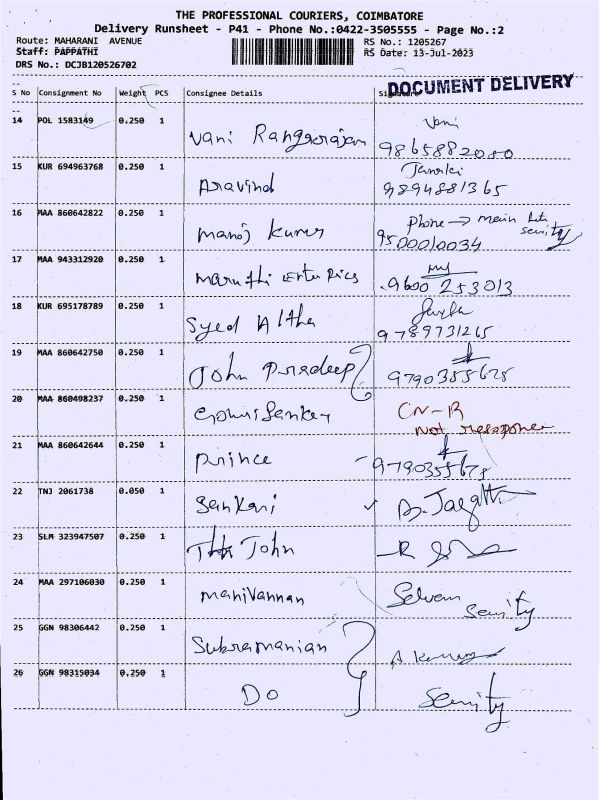 THE PROFESSIONAL COURIERS, COIMBATORE
Delivery Runsheet - P41 - Phone No.:0422-3505555 - Page No.:2
Route: MAHARANI AVENUE RS No.: 1205267
Staff: PAPPATHI RS Date: 13-Jul-2023
DRS No.: DCJB120526702
DOCUMENT DELIVERY
S No Consignment No Weight PCS Consignee Details
14 POL 1583149 0.250 1 Vani Rangarajan Vani
9865882050
15 KUR 694963768 0.250 1 Aravind Janaki
9894881365
16 MAA 860642822 0.250 1 Manoj Kumar Phone → main
9500010034
17 MAA 943312920 0.250 1 Maruthi Enterprices
9600 253013
18 KUR 695178789 0.250 1 Syed Altha
9789731265
19 MAA 860642750 0.250 1 John Pradeep
9790355678
20 MAA 860498237 0.250 1 Gowri Sanker CN-R
Not response
21 MAA 860642644 0.250 1 Prince
9790355678
22 TNJ 2061738 0.050 1 Sankari
23 SLM 323947507 0.250 1 John
24 MAA 297106030 0.250 1 Manivannan Selvam
25 GGN 98306442 0.250 1 Subramanian A Kumar
26 GGN 98315034 0.250 1 DO